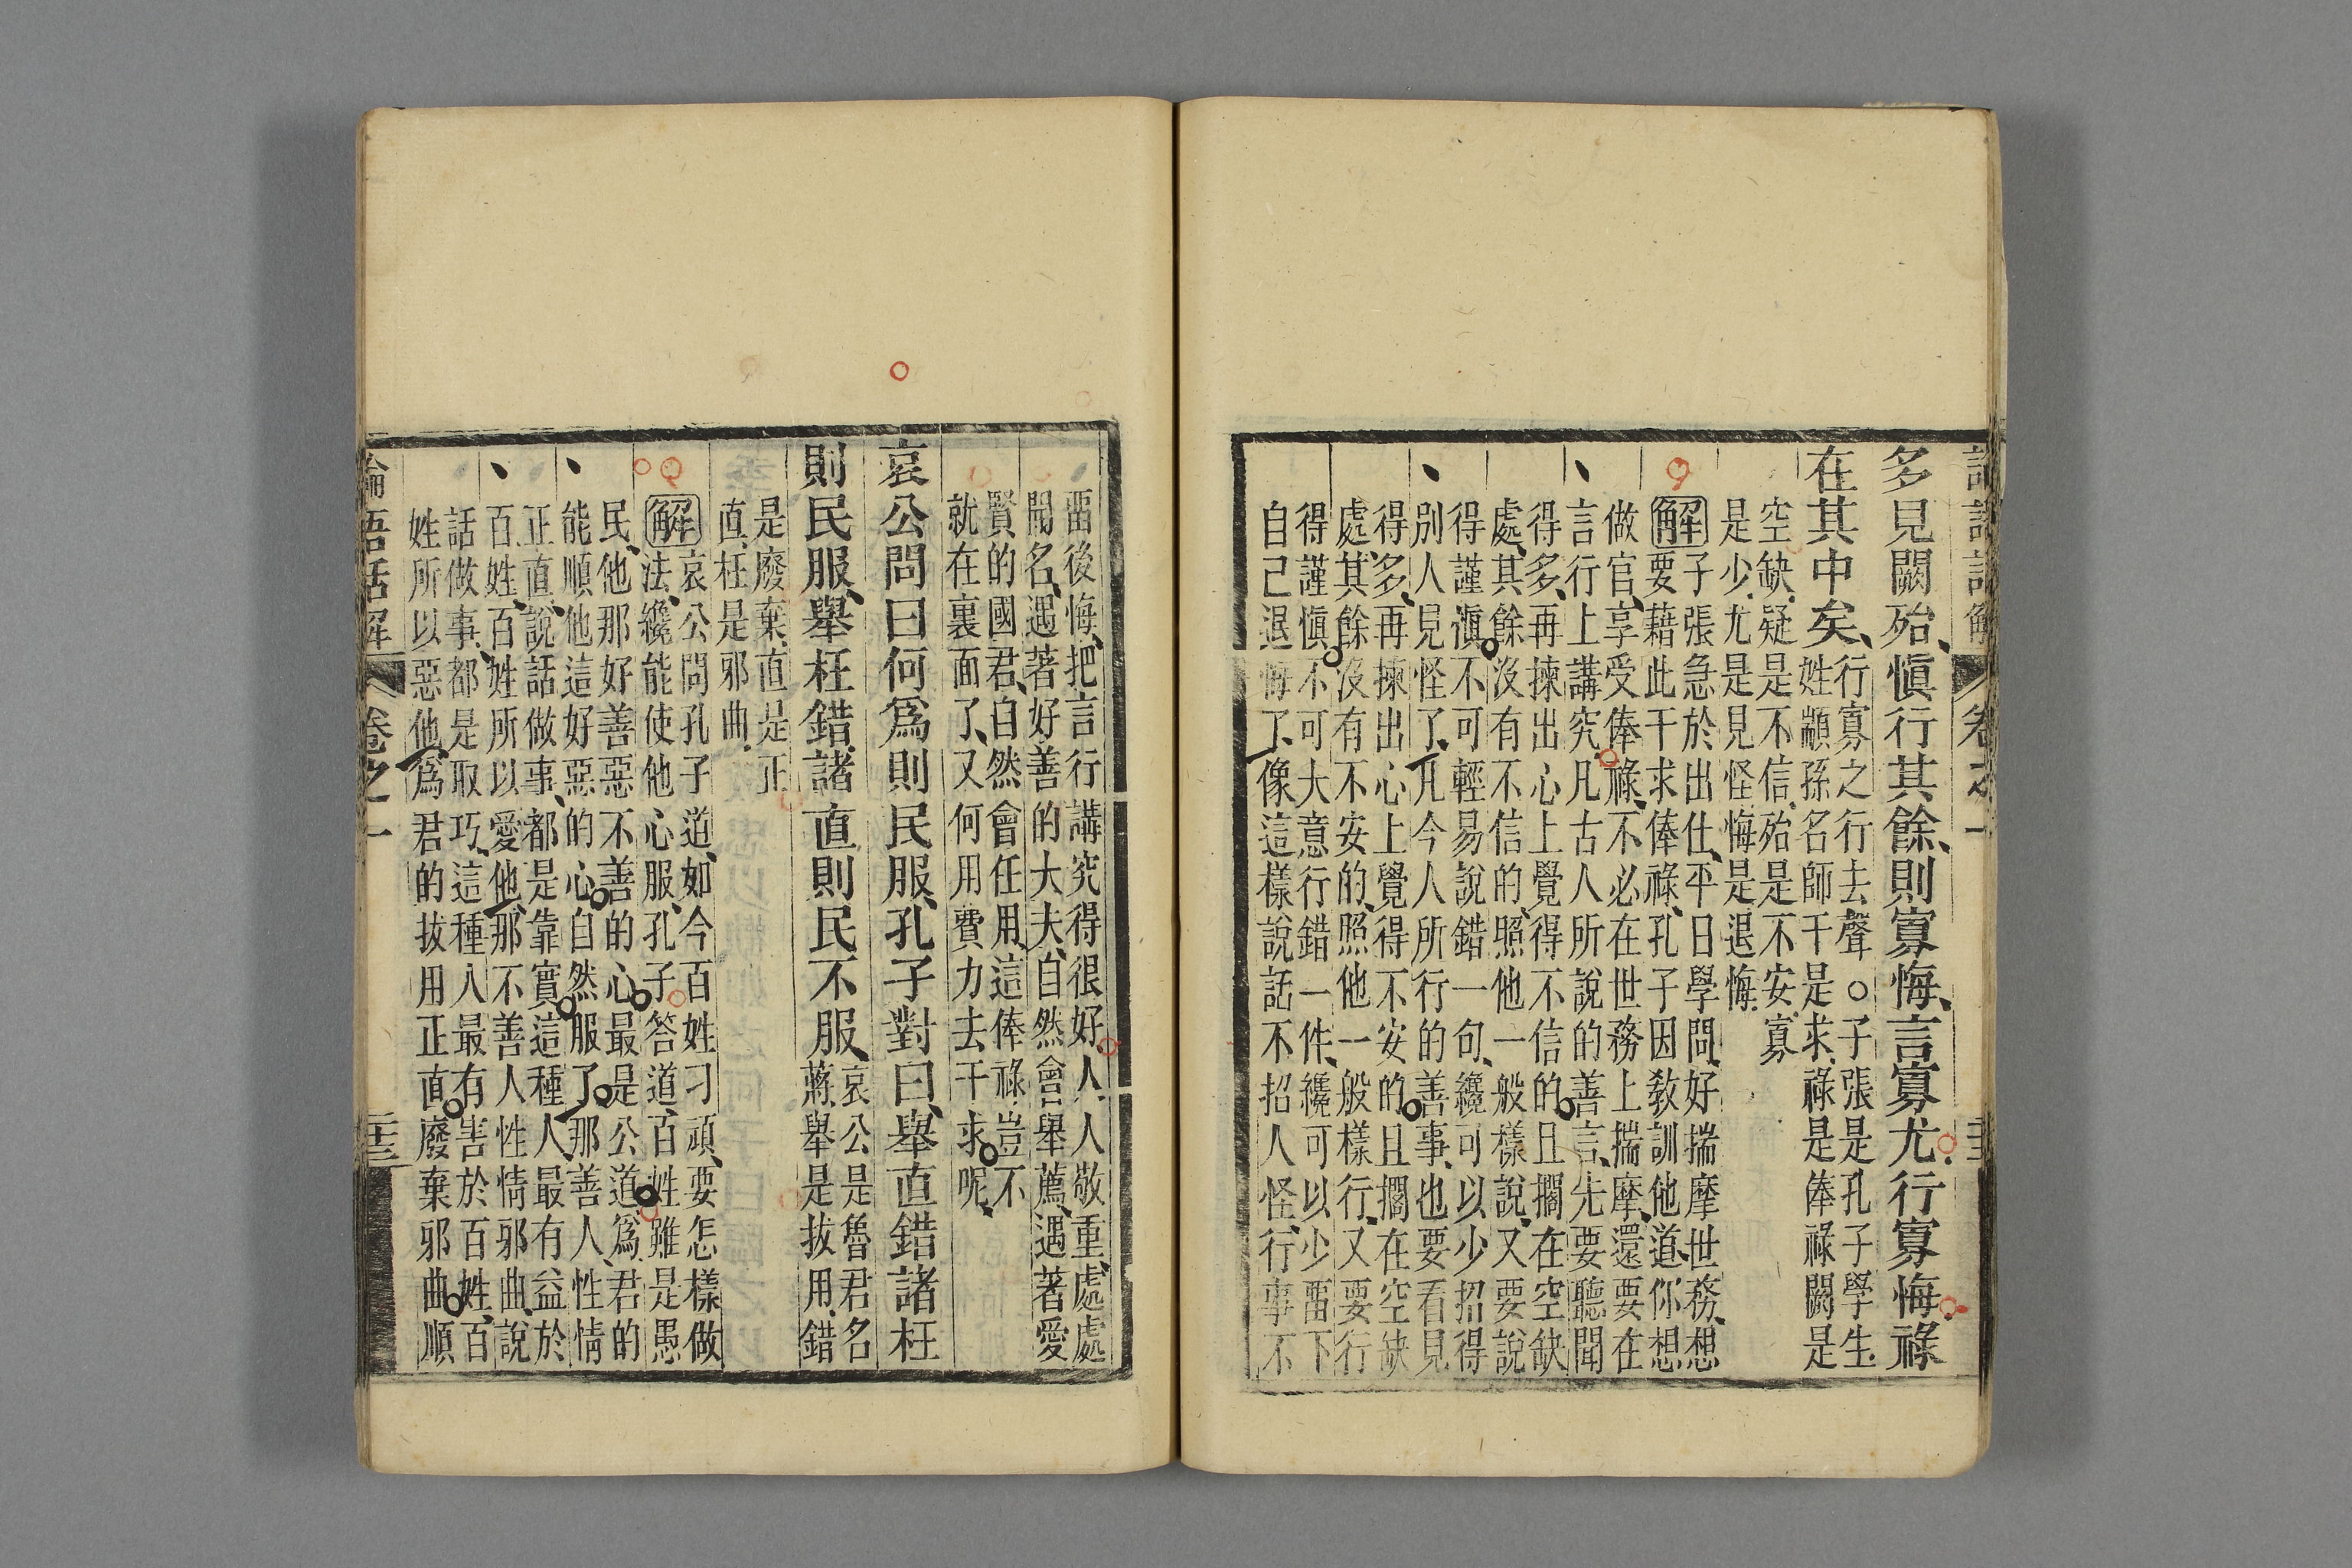 多見闕殆、愼行其餘、則寡悔、言寡尤、行寡悔、祿
在其中矣、
行寡之行去聲○子張是孔子學生、
姓顓孫名師干是求、祿是俸祿闕是
空缺、疑是不信、殆是不安、寡
是少、尤是見怪悔是退悔、
解
子張急於出仕、平日學問、好揣摩世務、想
要藉此干求俸祿、孔子因敎訓他道、你想
做官、享受俸祿、不必在世務上揣摩、還要在
言行上講究、凡古人所說的善言、先要聽聞
得多、再揀出心上覺得不信的、且擱在空缺
處、其餘沒有不信的、照他一般樣說、又要說
得謹愼、不可輕易說錯一句、纔可以少招得
別人見怪了、凡今人所行的善事、也要看見
得多、再揀出心上覺得不安的、且擱在空缺
處、其餘沒有不安的、照他一般樣行、又要行
得謹愼、不可大意行錯一件、纔可以少畱下
自己退悔了、像這樣說話不招人怪、行事不
畱後悔、把言行講究得很好、人人敬重、處處
聞名、遇著好善的大夫、自然會舉薦、遇著愛
賢的國君、自然會任用、這俸祿、豈不
就在裏面了、又何用費力去干求呢、
哀公問曰何爲則民服、孔子對曰、舉直錯諸枉
則民服、舉枉錯諸直則民不服、
哀公是魯君名
蔣、舉是拔用、錯
是廢棄、直是正
直、枉是邪曲、
解
哀公問孔子道、如今百姓刁頑、要怎樣做
法、纔能使他心服、孔子答道、百姓雖是愚
民、他那好善惡不善的心、最是公道、爲君的
能順他這好惡的心、自然服了、那善人、性情
正直、說話做事、都是靠實、這種人、最有益於
百姓、百姓所以愛他、那不善人性情邪曲、說
話做事、都是取巧、這種人最有害於百姓、百
姓所以惡他、爲君的拔用正直、廢棄邪曲、順
論語話解 卷之一